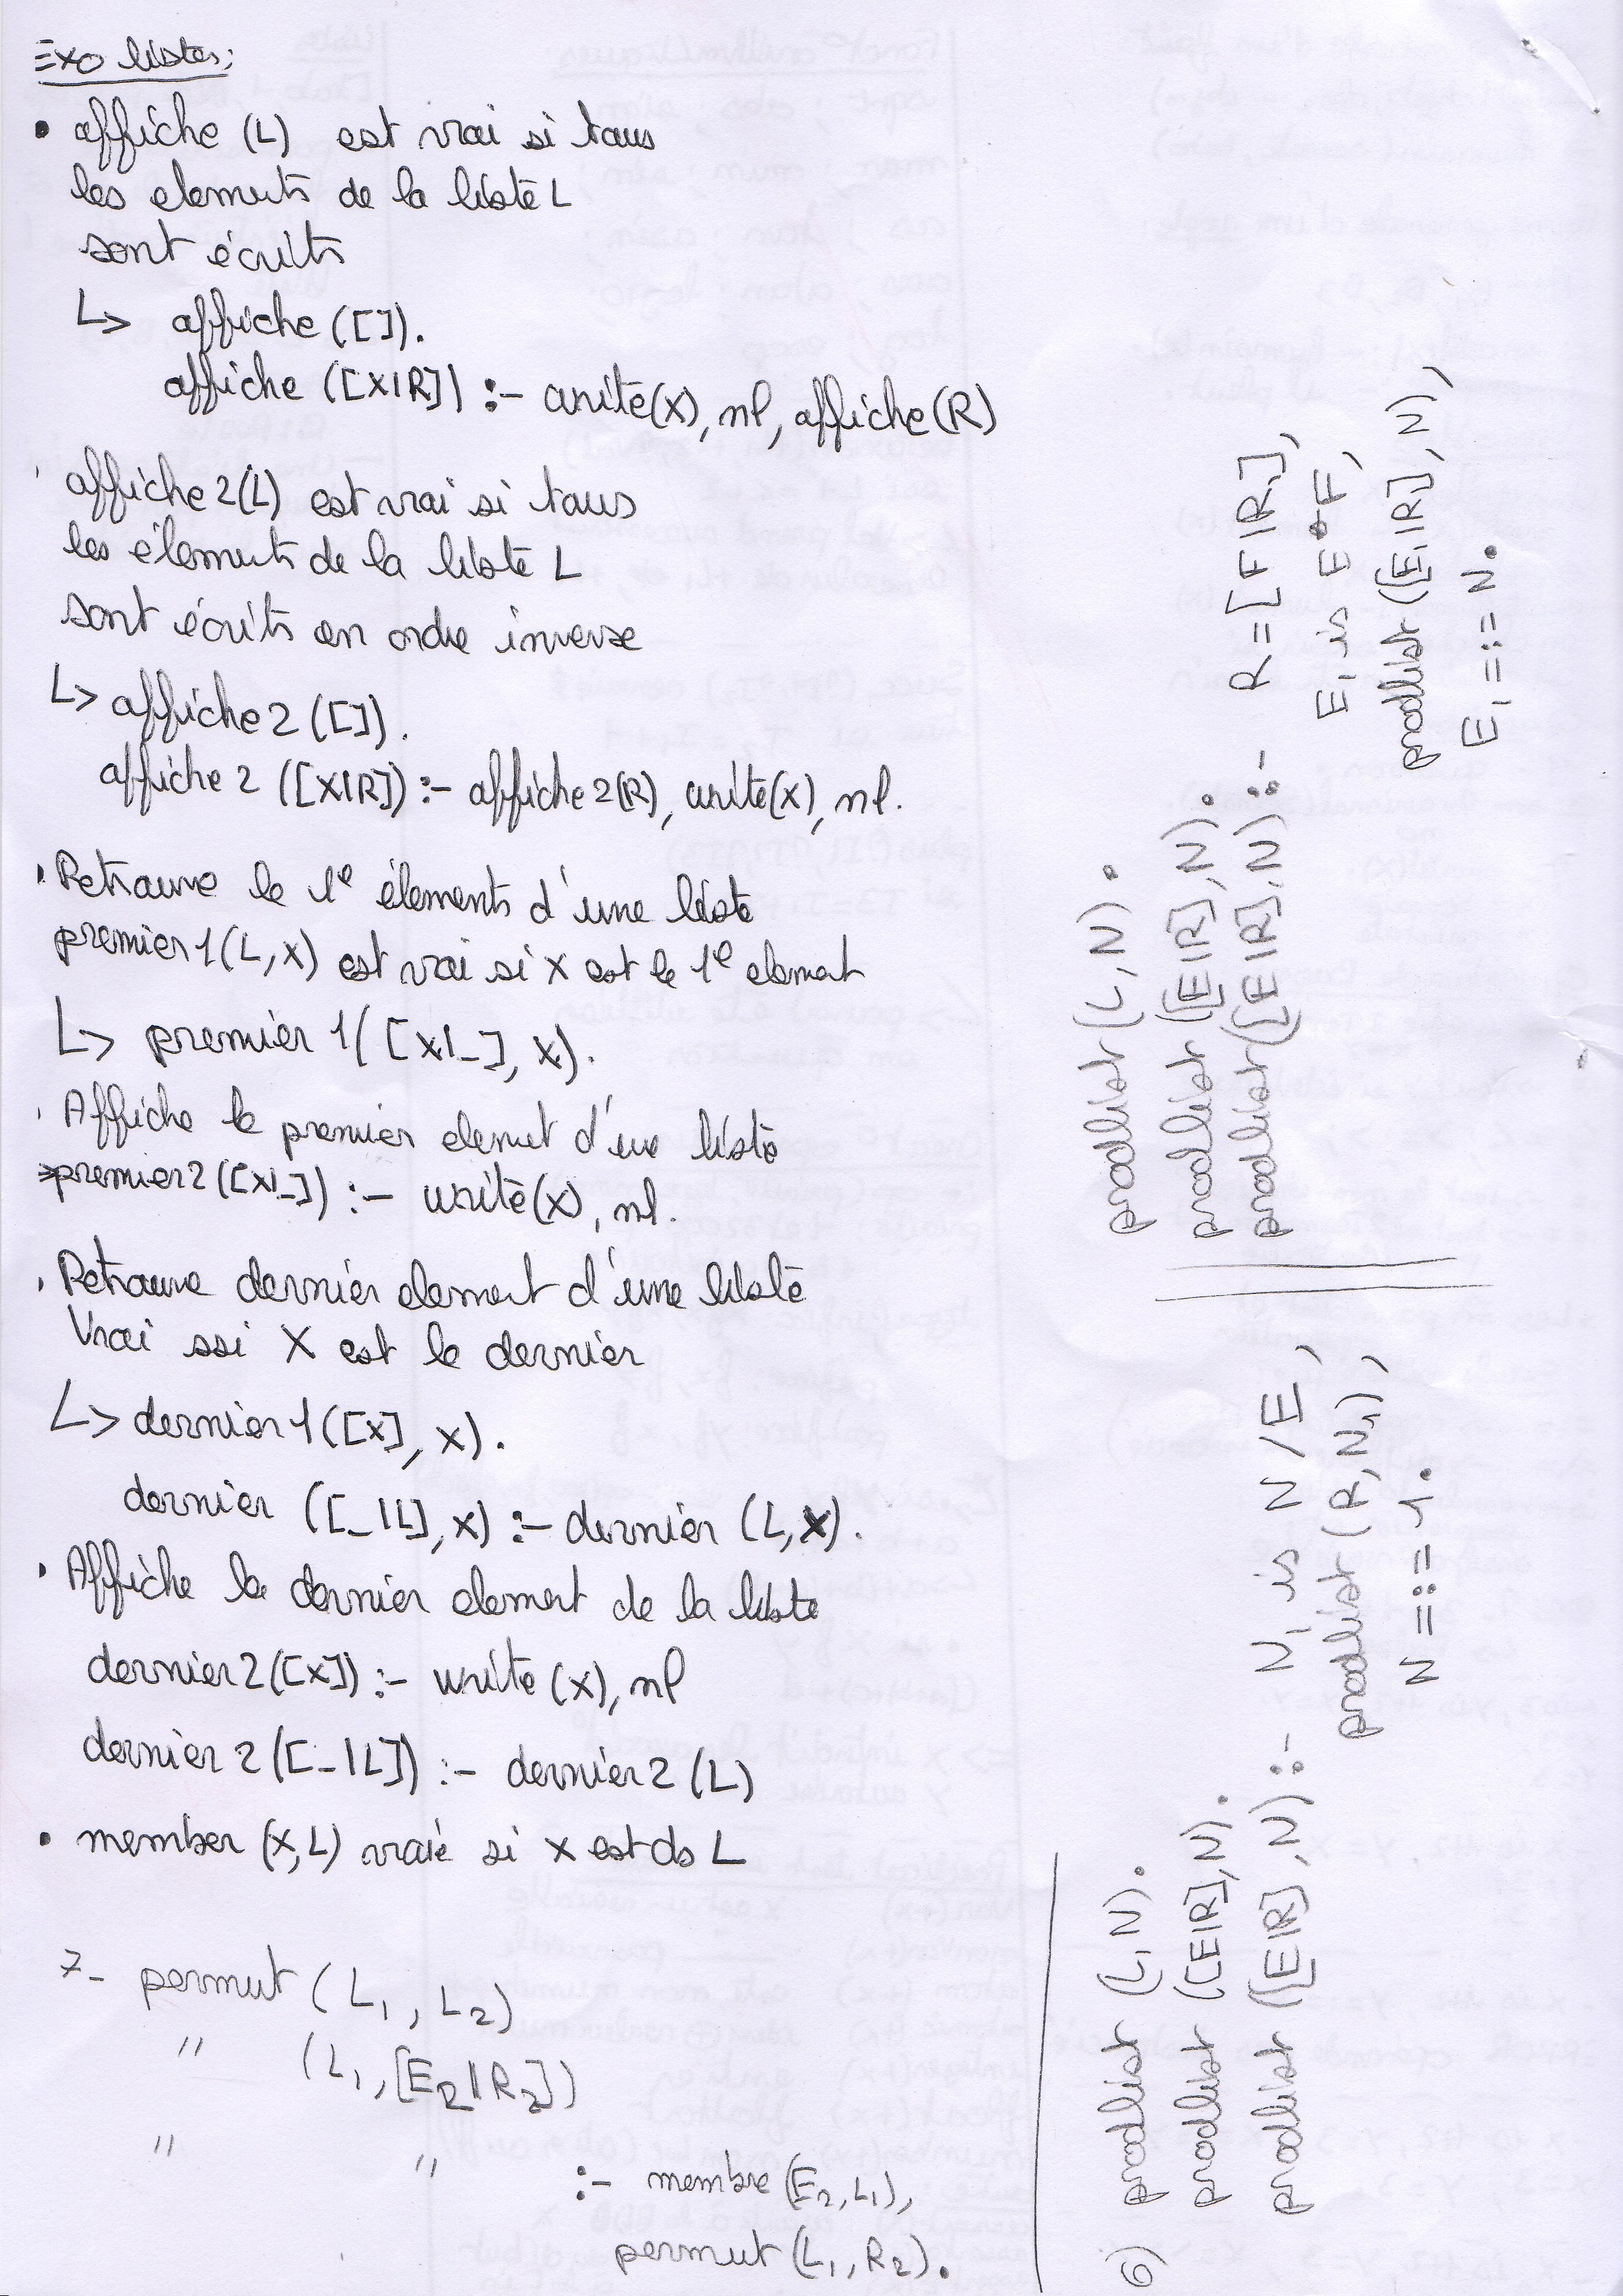 Exo listes:
• affiche (L) est vrai si tous
les elements de la liste L
sont écrits
↳ affiche ([]).
affiche ([X|R]) :- write(X), nl, affiche(R)
affiche2(L) est vrai si tous
les élements de la liste L
sont écrits en ordre inverse
↳ affiche2 ([]).
affiche2 ([X|R]) :- affiche2(R), write(X), nl.
• Retrouve le 1e élements d'une liste
premier1(L,X) est vrai si X est le 1e element
↳ premier1([X|_], X).
• Affiche le premier element d'une liste
premier2([X|_]) :- write(X), nl.
• Retrouve dernier element d'une liste
Vrai ssi X est le dernier
↳ dernier1([X], X).
dernier ([_|L], X) :- dernier (L,X).
• Affiche le dernier element de la liste
dernier2([X]) :- write (X), nl
dernier2([_|L]) :- dernier2 (L)
• member (X,L) vraie si X est ds L
7- permut (L1, L2)
" (L1, [E2|R2])
" " :- membre (E2, L1),
permut (L1, R2).
6) prodlist (L,N).
prodlist ([E|R],N).
prodlist ([E|R],N) :- N1 is N/E,
prodlist (R,N1),
N =:= 1.
prodlist (L,N).
prodlist ([E|R],N).
prodlist ([E|R],N) :- R=[F|R1],
E1 is E*F,
prodlist ([E1|R1],N),
E1 =:= N.